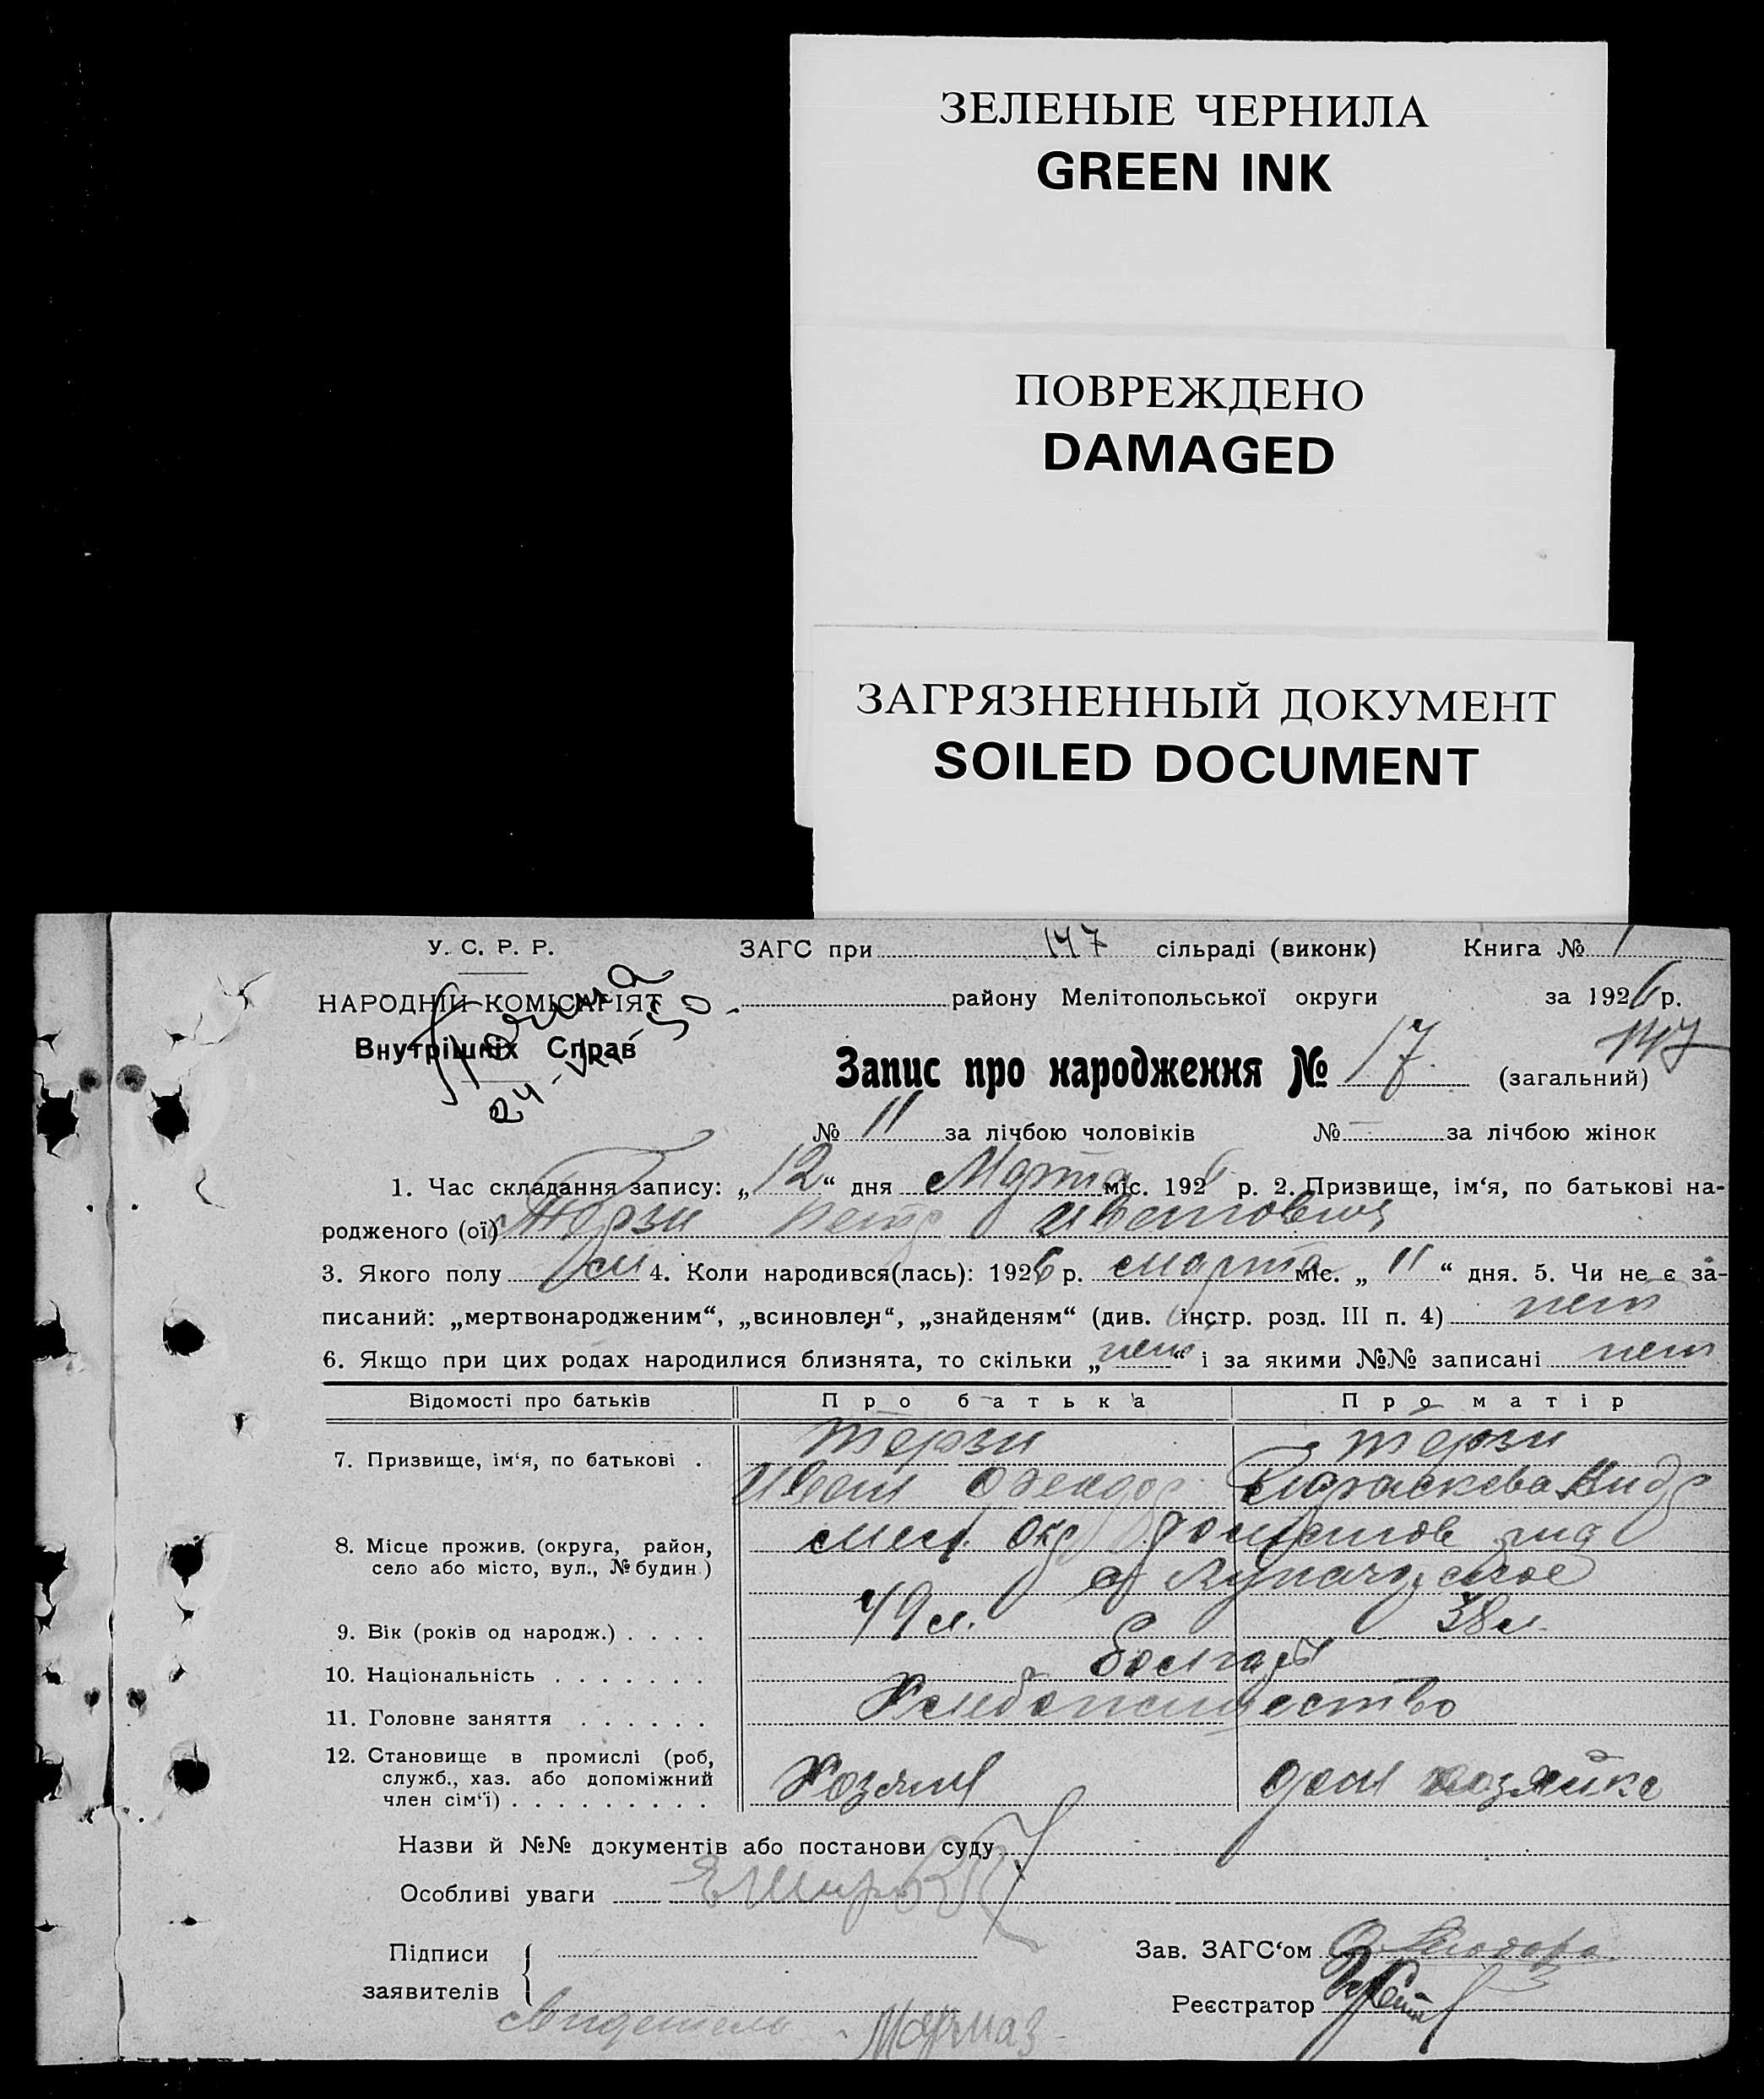 ЗЕЛЕНЫЕ ЧЕРНИЛА
GREEN INK
ПОВРЕЖДЕНО
DAMAGED
ЗАГРЯЗНЕННЫЙ ДОКУМЕНТ
SOILED DOCUMENT
У. С. Р. Р. ЗАГС при 147 сільраді (виконк) Книга № 1
НАРОДНІЙ КОМІСАРІЯТ районy Мелітопольської округи за 1926 р.
Внутрішніх Справ
24-VIII-50
147
Запис про народження № 17 (загальний)
№ 11 за лічбою чоловіків № – за лічбою жінок
1. Час складання запису: „12“ дня Марта міс. 1926 р. 2. Призвище, ім‘я, по батькові на-
родженого (ої) Терзи Петр Иванович
3. Якого полу м 4. Коли народився(лась): 1926 р. марта міс. „11“ дня. 5. Чи не є за-
писаний: „мертвонародженим“, „всиновлен“, „знайденям“ (див. інстр. розд. III п. 4) нет
6. Якщо при цих родах народилися близнята, то скільки „нет“ і за якими №№ записані нет
Відомості про батьків Про батька Про матір
7. Призвище, ім‘я, по батькові . Терзи Терзи
Иван Параскева
8. Місце прожив. (округа, район, Мел. Окр
село або місто, вул., № будин.)
9. Вік (років од народж.) . . . . 49 л. 38 л.
10. Національність . . . . . . . болгары
11. Головне заняття . . . . . . Хлебопашество
12. Становище в промислі (роб, Хозяин дом хозяйка
служб., хаз. або допоміжний
член сім‘ї) . . . . . . . . .
Назви й №№ документів або постанови суду
Особливі уваги
Підписи Зав. ЗАГС‘ом
заявителів
Реєстратор
свидетель